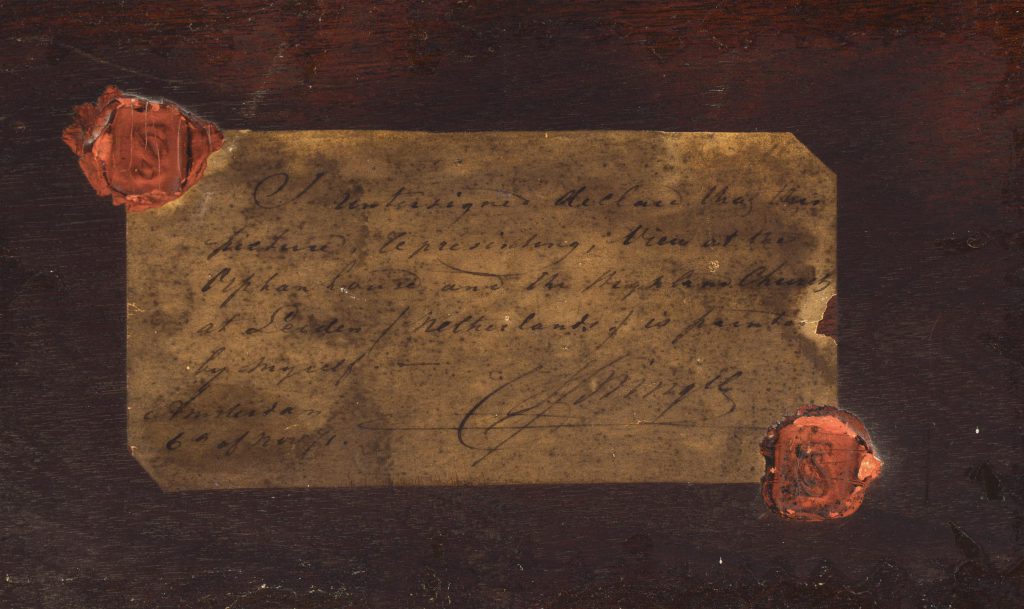 I Untersigned declare that this
picture, representing; View at the
Orphanhouse, and the Highland Church
at Leiden / Netherlands / is painted
by myself. —
Amsterdam CSpringer
6th of
CS